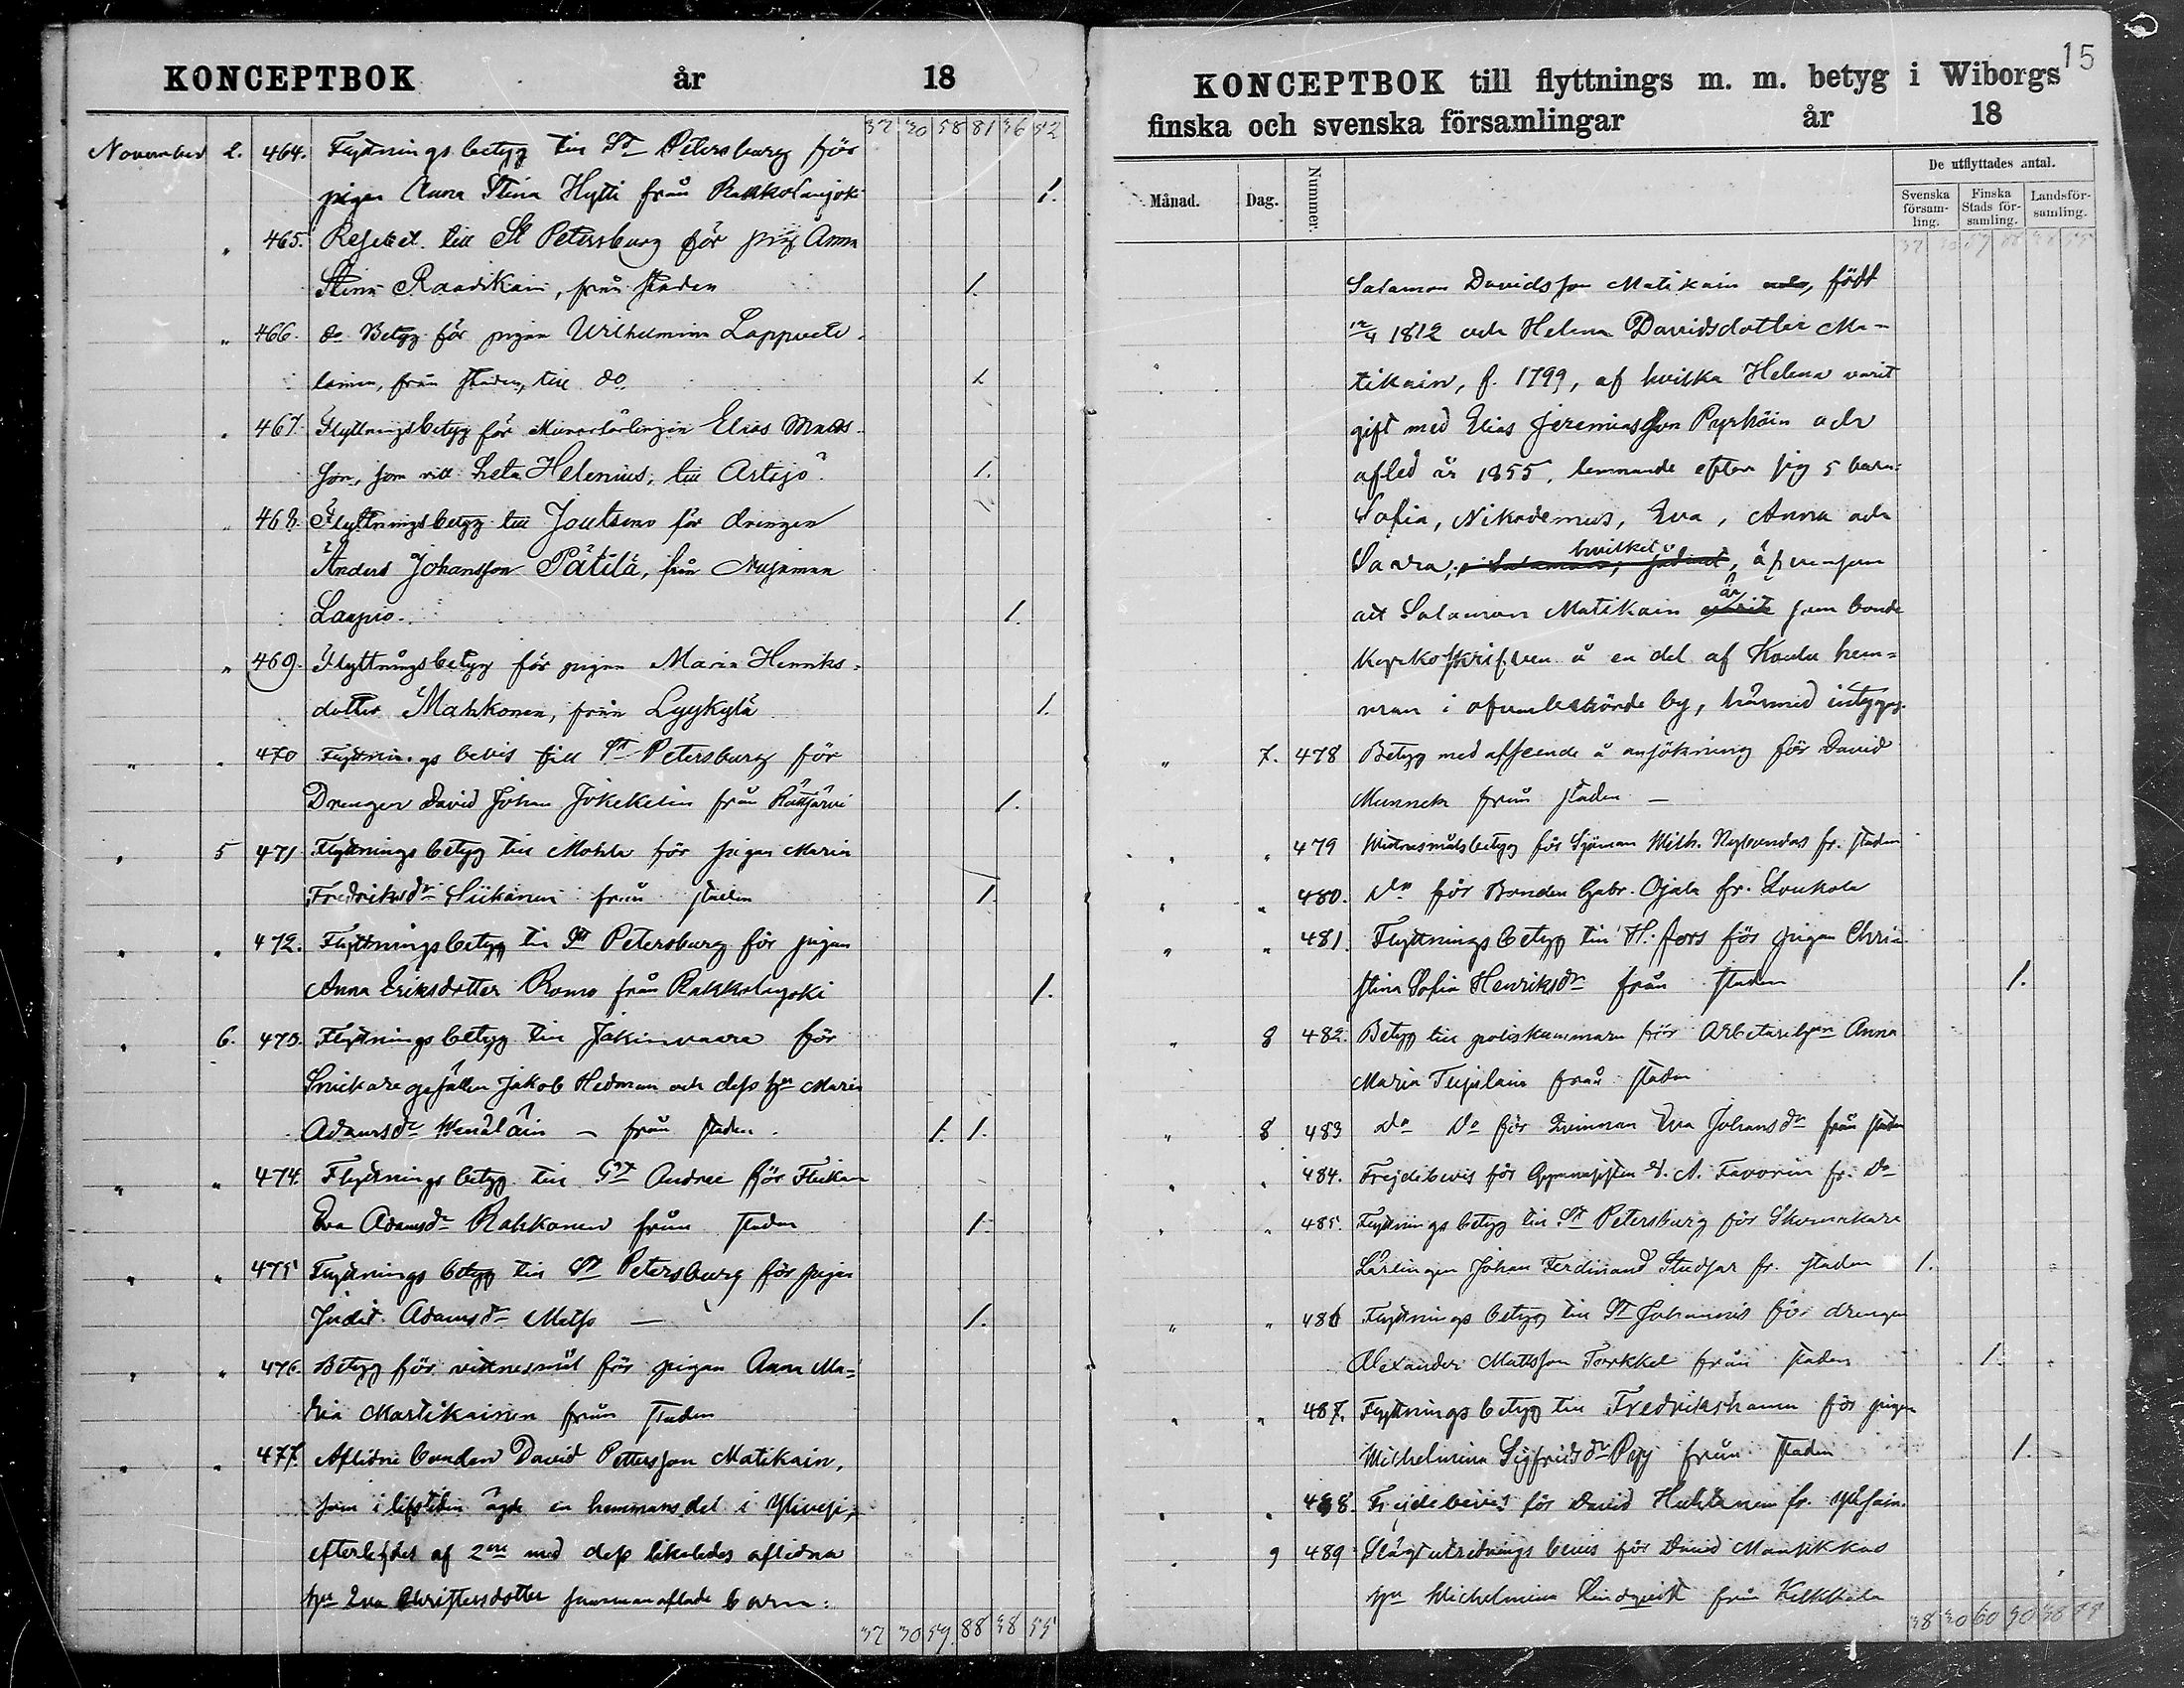 KONCEPTBOK år 18
37 30 58 81 36 52
November 2. 464. Flyttnings betyg till St Petersburg för
pigan Anna Stina Hytti från Rakkolanjok 1.
„ 465. till St Petersburg för pig. Anna
Stina Raadikain, från staden 1.
„ 466. do Betyg för pigan Wilhelmina Lappvete-
lainen, från staden, till do
„ 467. Flyttningsbetyg för Murarlärlingen Elias Mads-
son, som vill heta Helenius, till Artsjö. 1.
„ 468. Flyttningsbetyg till Joutseno för drengen
Anders Johansson Pätilä, från Nuijamaa
Laapio. 1.
„ 469. Flyttningsbetyg för pigan Maria Henriks-
dotter Mahkonen, från Lyykylä 1.
„ „ 470 Flyttnings bevis till St Petersburg för
Drengen David Johan Jokekelin från Rättijärvi 1.
„ 5 471 Flyttnings betyg till Mohla för pigan Maria
Fredriksdr Siikanen från staden 1.
„ „ 472. Flyttningsbetyg till St Petersburg för pigan
Anna Eriksdotter Romo från Rakkolanjoki 1.
„ 6. 473. Flyttnings betyg till Jäkimvaara för
Snickare gesällen Jakob Hedman och dess hu Maria
Adamsdr Wenäläin – från staden. 1. 1.
„ „ 474. Flyttnings betyg till St Andree för Flickan
Eva Adamsdr Rahkonen från staden 1.
„ „ 475 Flyttnings betyg till St Petersburg för pigan
Judit Adamsdr Matso — 1.
„ „ 476. Betyg för vittnesmål för pigan Anna Ma-
ria Martikainen från staden
„ „ 477. Aflidne bonden David Pettersson Matikain,
som i lifstiden ägde en hemmansdel i Ylivesi,
efterlefdes af 2ne med dess likaledes aflidna
hu Eva Christersdotter sammanaflade barn:
37 30 59. 88 38 55
15
KONCEPTBOK till flyttnings m. m. betyg i Wiborgs
finska och svenska församlingar år 18
Månad. Dag. Nummer. De utflyttades antal.
Svenska försam-ling. Finska Stads för-samling. Landsför-samling.
Salamon Davidsson Matikain, född
12/4 1812 och Helena Davidsdotter Ma-
tikain, f. 1799, af hvilka Helena varit
gift med Elias Jeremiasson Pyrhäin och
afled år 1855, lemnande efter sig 5 barn:
Sofia, Nikodemus, Eva, Anna och
Saara; hvilket, äfvensom
att Salamon Matikain är som bonde
kyrkoskrifven å en del af hem-
man i ofvanberörde by, härmed intygas.
„ 7. 478 Betyg med afseende å ansökning för David
Munneck från staden —
„ „ 479 Wittnesmålsbetyg för Sjöman Wilh. Nylander fr. staden
„ „ 480. Do för Bonden Gabr. Ojala fr. Loukola
„ „ 481. Flyttnings betyg till H:fors för pigan Chri-
stina Sofia Henriksdr från staden 1.
„ 8 482. Betyg till poliskammaren för Arbetarehu Anna
Maria från staden
„ 8 483 Do Do för Qvinnan Eva Johansdr från staden
„ „ 484. Frejdebevis för Gymnasisten A. Favorin fr. Do
„ „ 485. Flyttnings betyg till St Petersburg för Skomakare
Lärlingen Johan Ferdinand Studsar fr. staden 1.
„ „ 486 Flyttnings betyg till St Johannis för drengen
Alexander Mattsson Torkkel från staden 1.
„ „ 487. Flyttnings betyg till Fredrikshamn för pigan
Wilhelmina Sigfridsdr Pyy från staden 1.
„ „ 488. Frejdebevis för David Huhtanen fr.
„ 9 489 Slägtutrednings bevis för David
hu Wilhelmina Lindqvist från Kilkkala
38 30 60 90 38 55